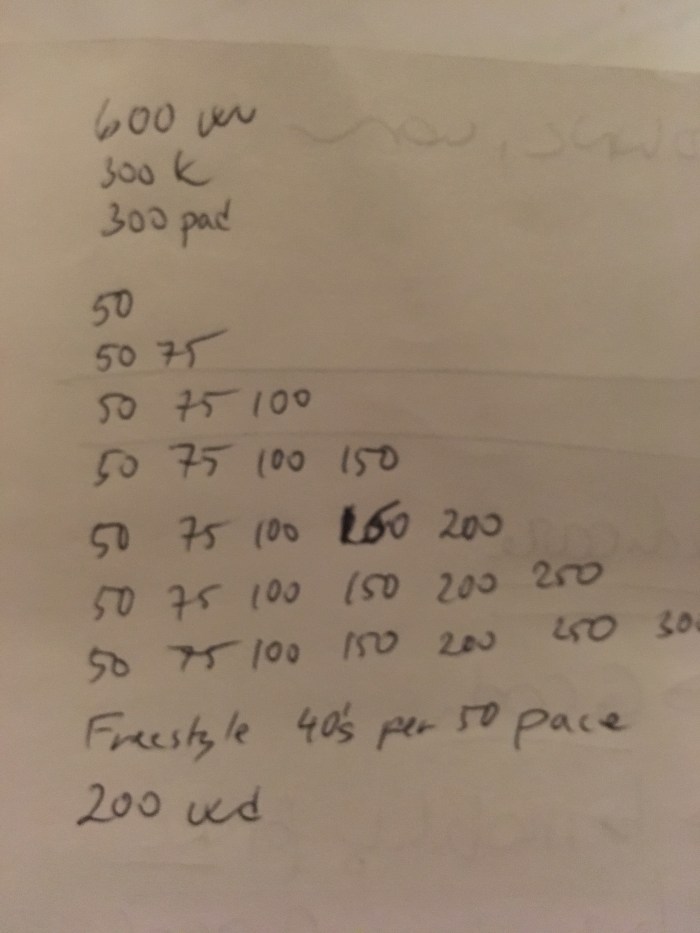 600 wu
300 K
300 pad
50
50 75
50 75 100
50 75 100 150
50 75 100 150 200
50 75 100 150 200 250
50 75 100 150 200 250 300
Freestyle 40's per 50 pace
200 wd